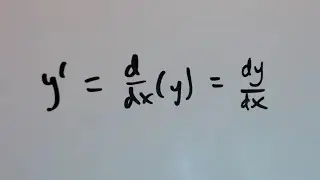 y' = d/dx (y) = dy/dx